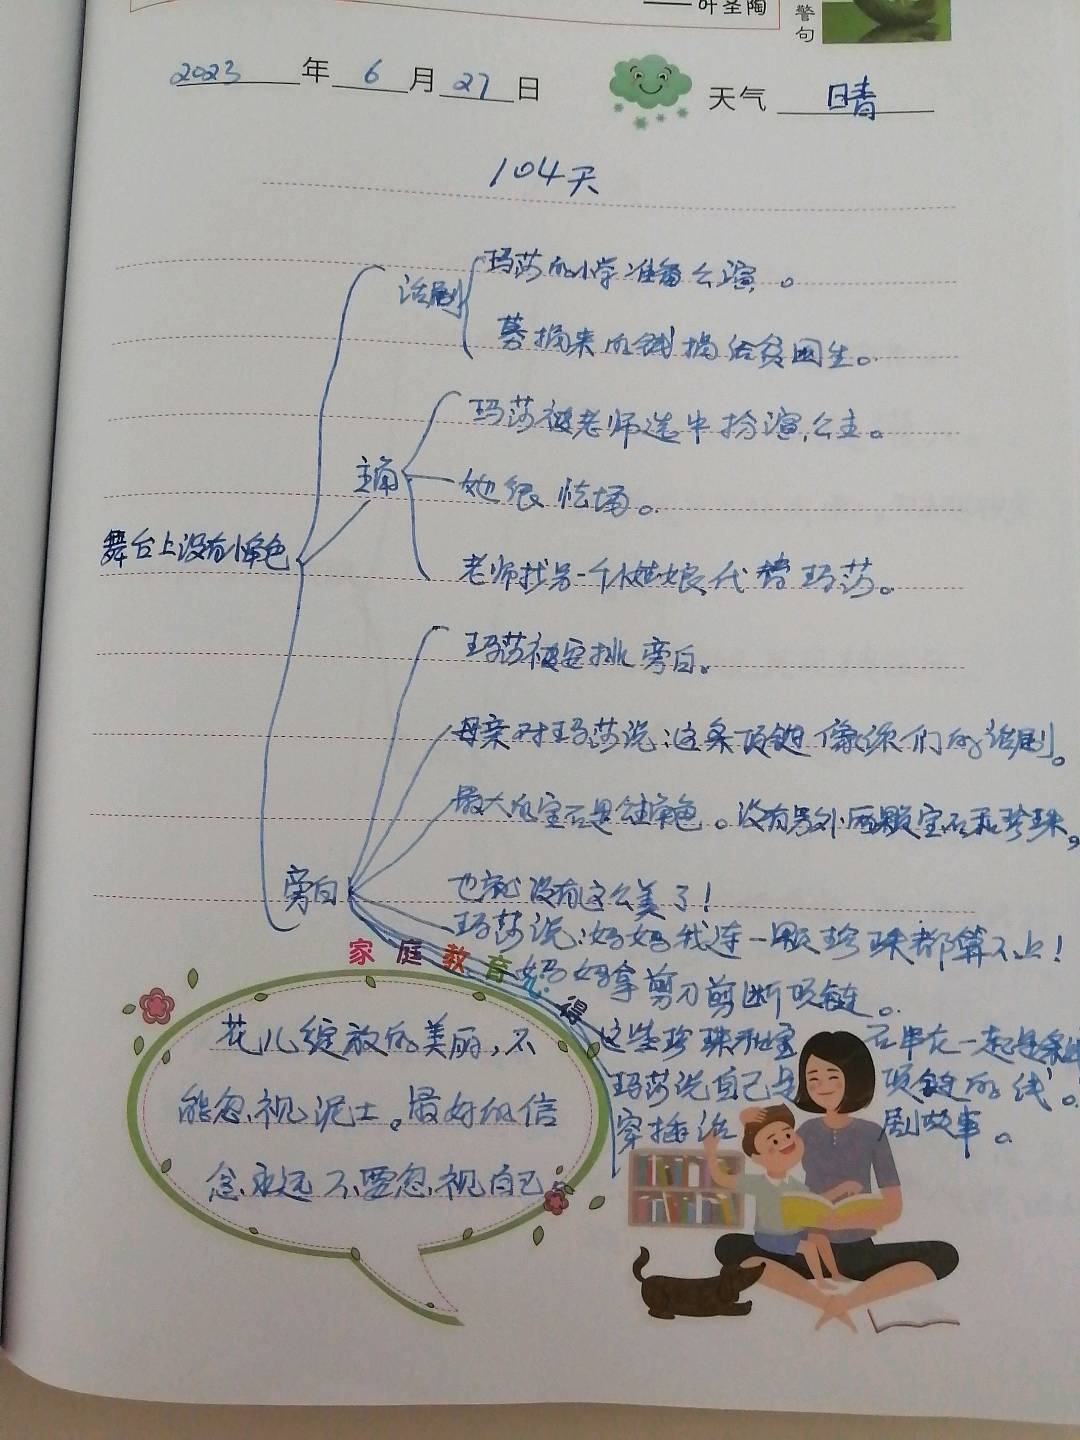 ——叶圣陶
警
句
2023年6月27日 天气 晴
104天
话剧
玛莎的小学准备公演。
募捐来的钱捐给贫困生。
玛莎被老师选中扮演公主。
主角
她很怯场。
舞台上没有小角色
老师找另一个小姑娘代替玛莎。
玛莎被安排旁白。
母亲对玛莎说:这条项链像你们的话剧。
最大的宝石是主角色。没有另外两颗宝石和珍珠,
旁白
也就没有这么美了!
玛莎说:妈妈我连一颗珍珠都算不上!
家庭教育
得
妈妈拿剪刀剪断项链。
这些珍珠和宝石串在一起是条
玛莎说自己是项链的线。
穿插话剧故事。
花儿绽放的美丽,不
能忽视泥土。最好的信
念永远不要忽视自己。